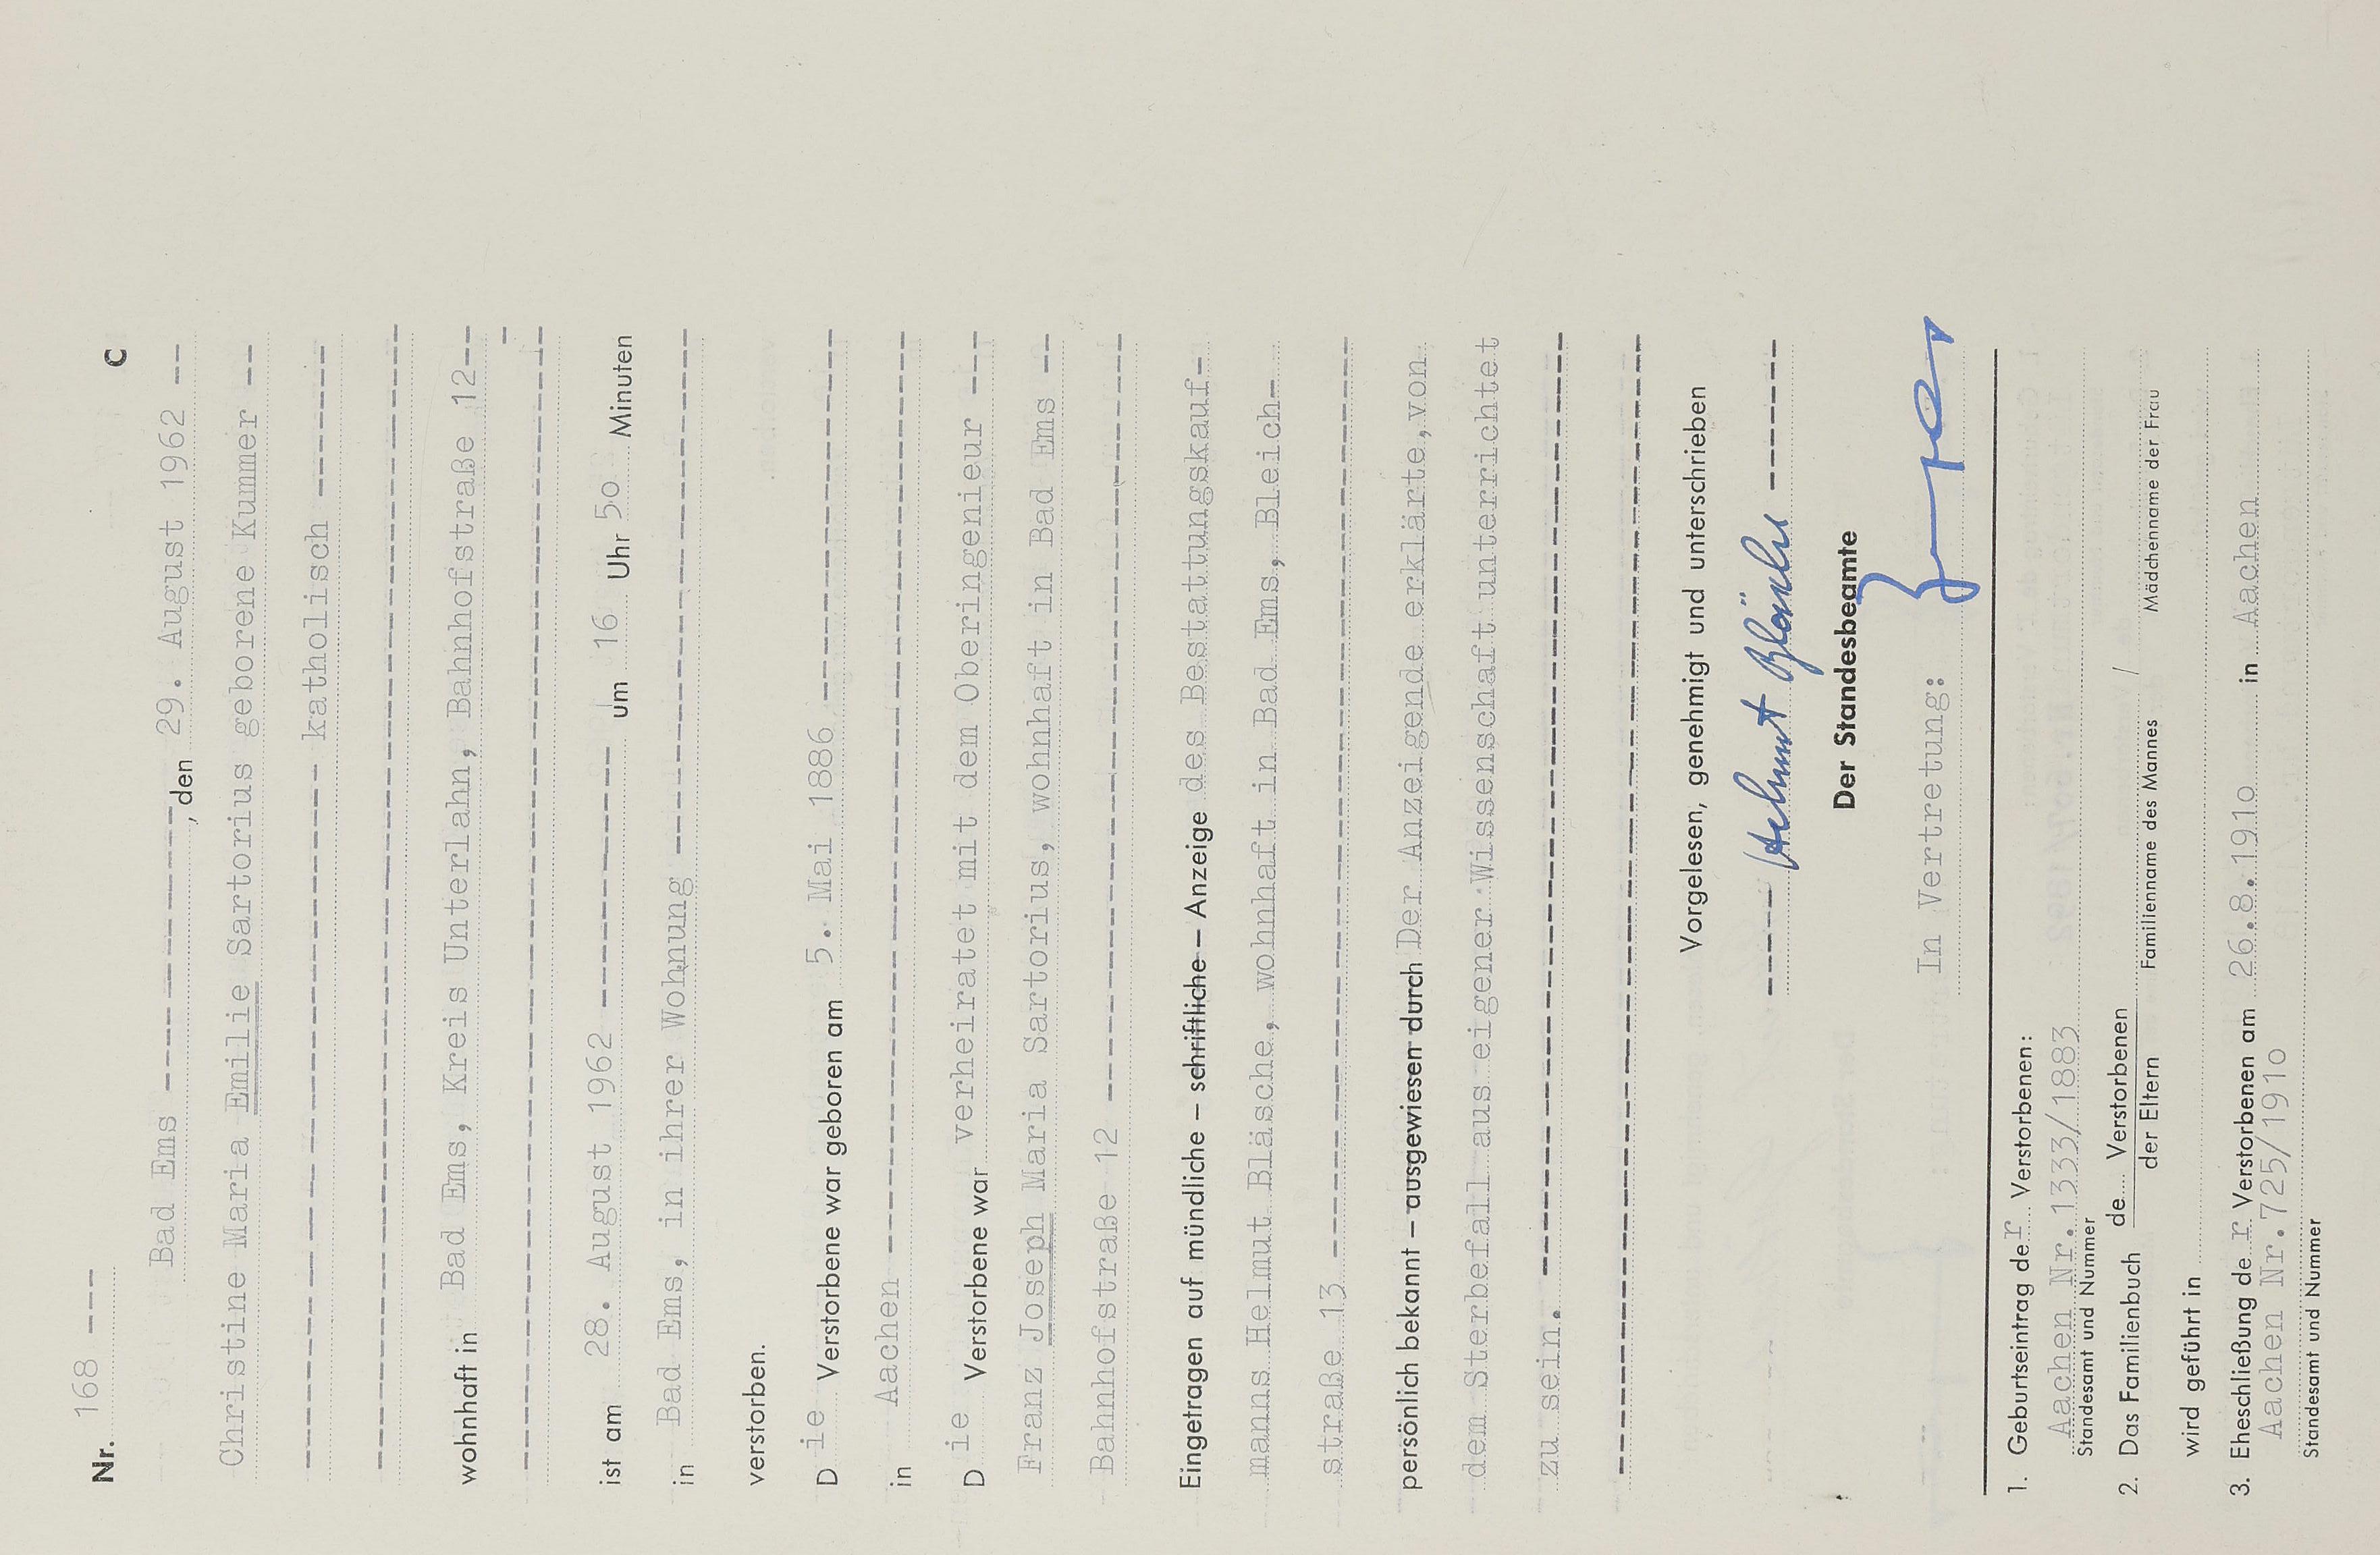 Nr. 168 ---
C
Bad Ems ------------, den 29. August 1962 --
Christine Maria Emilie Sartorius geborene Kummer --
------------------- katholisch --------
--------------------------------
wohnhaft in Bad Ems, Kreis Unterlahn, Bahnhofstraße 12---
--------------------------------
ist am 28. August 1962 ------------ um 16 Uhr 5o Minuten
in Bad Ems, in ihrer Wohnung ------------------------
verstorben.
Die Verstorbene war geboren am 5. Mai 1886 ----------------
in Aachen ----------------------------------------
Die Verstorbene war verheiratet mit dem Oberingenieur ---
Franz Joseph Maria Sartorius, wohnhaft in Bad Ems --
Bahnhofstraße 12 ------------------------------------
Eingetragen auf mündliche – schriftliche – Anzeige des Bestattungskauf-
manns Helmut Bläsche, wohnhaft in Bad Ems, Bleich-
straße 13 ------------------------------------------
persönlich bekannt – ausgewiesen durch Der Anzeigende erklärte,von
dem Sterbefall aus eigener Wissenschaft unterrichtet
zu sein. ------------------------------------------
--------------------------------
Vorgelesen, genehmigt und unterschrieben
----- Helmut Bläsche -------
Der Standesbeamte
In Vertretung:
1. Geburtseintrag der Verstorbenen:
Aachen Nr.1333/1883
Standesamt und Nummer
2. Das Familienbuch de Verstorbenen /
der Eltern Familienname des Mannes Mädchenname der Frau
wird geführt in
3. Eheschließung der Verstorbenen am 26.8.191o in Aachen
Aachen Nr.725/191o
Standesamt und Nummer